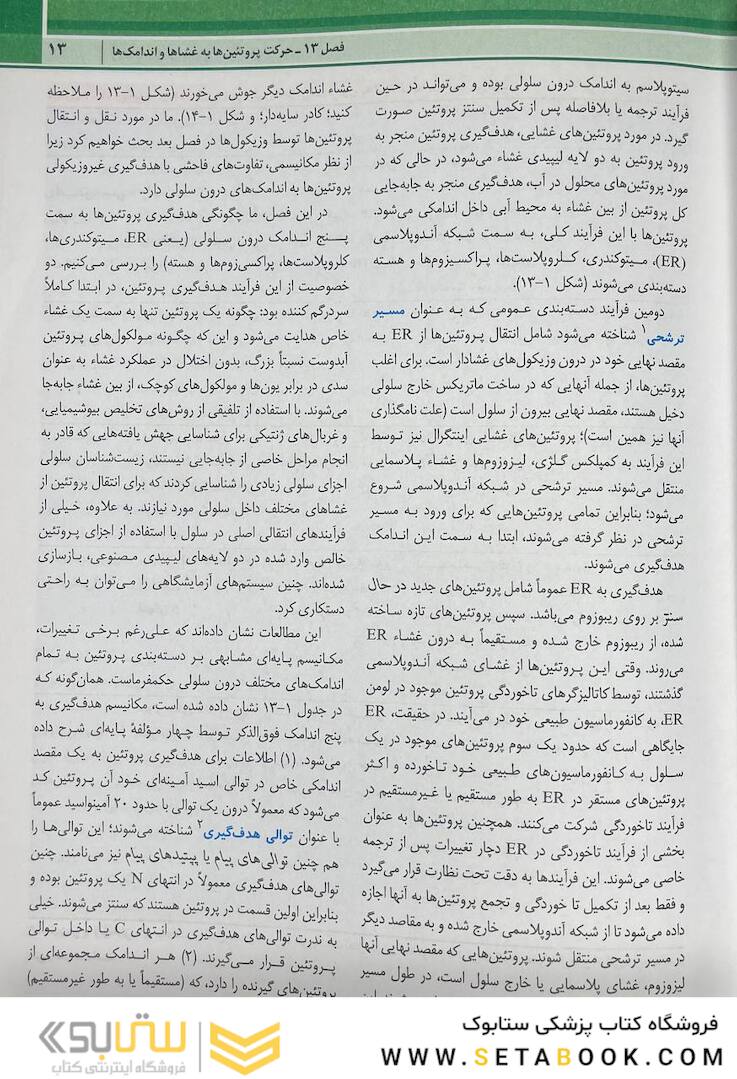 فصل ۱۳ ـ حرکت پروتئین‌ها به غشاها و اندامک‌ها
۱۳
سیتوپلاسم به اندامک درون سلولی بوده و می‌تواند در حین
فرآیند ترجمه یا بلافاصله پس از تکمیل سنتز پروتئین صورت
گیرد. در مورد پروتئین‌های غشایی، هدف‌گیری پروتئین منجر به
ورود پروتئین به دو لایه لیپیدی غشاء می‌شود، در حالی که در
مورد پروتئین‌های محلول در آب، هدف‌گیری منجر به جابه‌جایی
کل پروتئین از بین غشاء به محیط آبی داخل اندامکی می‌شود.
پروتئین‌ها با این فرآیند کلی، به سمت شبکه آندوپلاسمی
(ER)، میتوکندری، کلروپلاست‌ها، پراکسیزوم‌ها و هسته
دسته‌بندی می‌شوند (شکل ۱–۱۳).
دومین فرآیند دسته‌بندی عمومی که به عنوان مسیر
ترشحی۱ شناخته می‌شود شامل انتقال پروتئین‌ها از ER به
مقصد نهایی خود در درون وزیکول‌های غشادار است. برای اغلب
پروتئین‌ها، از جمله آنهایی که در ساخت ماتریکس خارج سلولی
دخیل هستند، مقصد نهایی بیرون از سلول است (علت نامگذاری
آنها نیز همین است)؛ پروتئین‌های غشایی اینتگرال نیز توسط
این فرآیند به کمپلکس گلژی، لیزوزوم‌ها و غشاء پلاسمایی
منتقل می‌شوند. مسیر ترشحی در شبکه آندوپلاسمی شروع
می‌شود؛ بنابراین تمامی پروتئین‌هایی که برای ورود به مسیر
ترشحی در نظر گرفته می‌شوند، ابتدا به سمت این اندامک
هدف‌گیری می‌شوند.
هدف‌گیری به ER عموماً شامل پروتئین‌های جدید در حال
سنتز بر روی ریبوزوم می‌باشد. سپس پروتئین‌های تازه ساخته
شده، از ریبوزوم خارج شده و مستقیماً به درون غشاء ER
می‌روند. وقتی این پروتئین‌ها از غشای شبکه آندوپلاسمی
گذشتند، توسط کاتالیزگرهای تاخوردگی پروتئین موجود در لومن
ER، به کانفورماسیون طبیعی خود در می‌آیند. در حقیقت، ER
جایگاهی است که حدود یک سوم پروتئین‌های موجود در یک
سلول به کانفورماسیون‌های طبیعی خود تاخورده و اکثر
پروتئین‌های مستقر در ER به طور مستقیم یا غیرمستقیم در
فرآیند تاخوردگی شرکت می‌کنند. همچنین پروتئین‌ها به عنوان
بخشی از فرآیند تاخوردگی در ER دچار تغییرات پس از ترجمه
خاصی می‌شوند. این فرآیندها به دقت تحت نظارت قرار می‌گیرد
و فقط بعد از تکمیل تا خوردگی و تجمع پروتئین‌ها به آنها اجازه
داده می‌شود تا از شبکه آندوپلاسمی خارج شده و به مقاصد دیگر
در مسیر ترشحی منتقل شوند. پروتئین‌هایی که مقصد نهایی آنها
لیزوزوم، غشای پلاسمایی یا خارج سلول است، در طول مسیر
غشاء اندامک دیگر جوش می‌خورند (شکل ۱–۱۳ را ملاحظه
کنید؛ کادر سایه‌دار؛ و شکل ۱–۱۴). ما در مورد نقل و انتقال
پروتئین‌ها توسط وزیکول‌ها در فصل بعد بحث خواهیم کرد زیرا
از نظر مکانیسمی، تفاوت‌های فاحشی با هدف‌گیری غیروزیکولی
پروتئین‌ها به اندامک‌های درون سلولی دارد.
در این فصل، ما چگونگی هدف‌گیری پروتئین‌ها به سمت
پنج اندامک درون سلولی (یعنی ER، میتوکندری‌ها،
کلروپلاست‌ها، پراکسی‌زوم‌ها و هسته) را بررسی می‌کنیم. دو
خصوصیت از این فرآیند هدف‌گیری پروتئین، در ابتدا کاملاً
سردرگم کننده بود: چگونه یک پروتئین تنها به سمت یک غشاء
خاص هدایت می‌شود و این که چگونه مولکول‌های پروتئین
آبدوست نسبتاً بزرگ، بدون اختلال در عملکرد غشاء به عنوان
سدی در برابر یون‌ها و مولکول‌های کوچک، از بین غشاء جابه‌جا
می‌شوند. با استفاده از تلفیقی از روش‌های تخلیص بیوشیمیایی،
و غربال‌های ژنتیکی برای شناسایی جهش یافته‌هایی که قادر به
انجام مراحل خاصی از جابه‌جایی نیستند، زیست‌شناسان سلولی
اجزای سلولی زیادی را شناسایی کردند که برای انتقال پروتئین از
غشاهای مختلف داخل سلولی مورد نیازند. به علاوه، خیلی از
فرآیندهای انتقالی اصلی در سلول با استفاده از اجزای پروتئین
خالص وارد شده در دو لایه‌های لیپیدی مصنوعی، بازسازی
شده‌اند. چنین سیستم‌های آزمایشگاهی را می‌توان به راحتی
دستکاری کرد.
این مطالعات نشان داده‌اند که علی‌رغم برخی تغییرات،
مکانیسم پایه‌ای مشابهی بر دسته‌بندی پروتئین به تمام
اندامک‌های مختلف درون سلولی حکمفرماست. همان‌گونه که
در جدول ۱–۱۳ نشان داده شده است، مکانیسم هدف‌گیری به
پنج اندامک فوق‌الذکر توسط چهار مؤلفهٔ پایه‌ای شرح داده
می‌شود. (۱) اطلاعات برای هدف‌گیری پروتئین به یک مقصد
اندامکی خاص در توالی اسید آمینه‌ای خود آن پروتئین کد
می‌شود که معمولاً درون یک توالی با حدود ۲۰ آمینواسید عموماً
با عنوان توالی هدف‌گیری۲ شناخته می‌شوند؛ این توالی‌ها را
هم چنین توالی‌های پیام یا پپتیدهای پیام نیز می‌نامند. چنین
توالی‌های هدف‌گیری معمولاً در انتهای N یک پروتئین بوده و
بنابراین اولین قسمت در پروتئین هستند که سنتز می‌شوند. خیلی
به ندرت توالی‌های هدف‌گیری در انتهای C یا داخل توالی
پروتئین قرار می‌گیرند. (۲) هر اندامک مجموعه‌ای از
پروتئین‌های گیرنده را دارد، که (مستقیماً یا به طور غیرمستقیم)
فروشگاه کتاب پزشکی ستابوک
WWW.SETABOOK.COM
ستابوک
فروشگاه اینترنتی کتاب